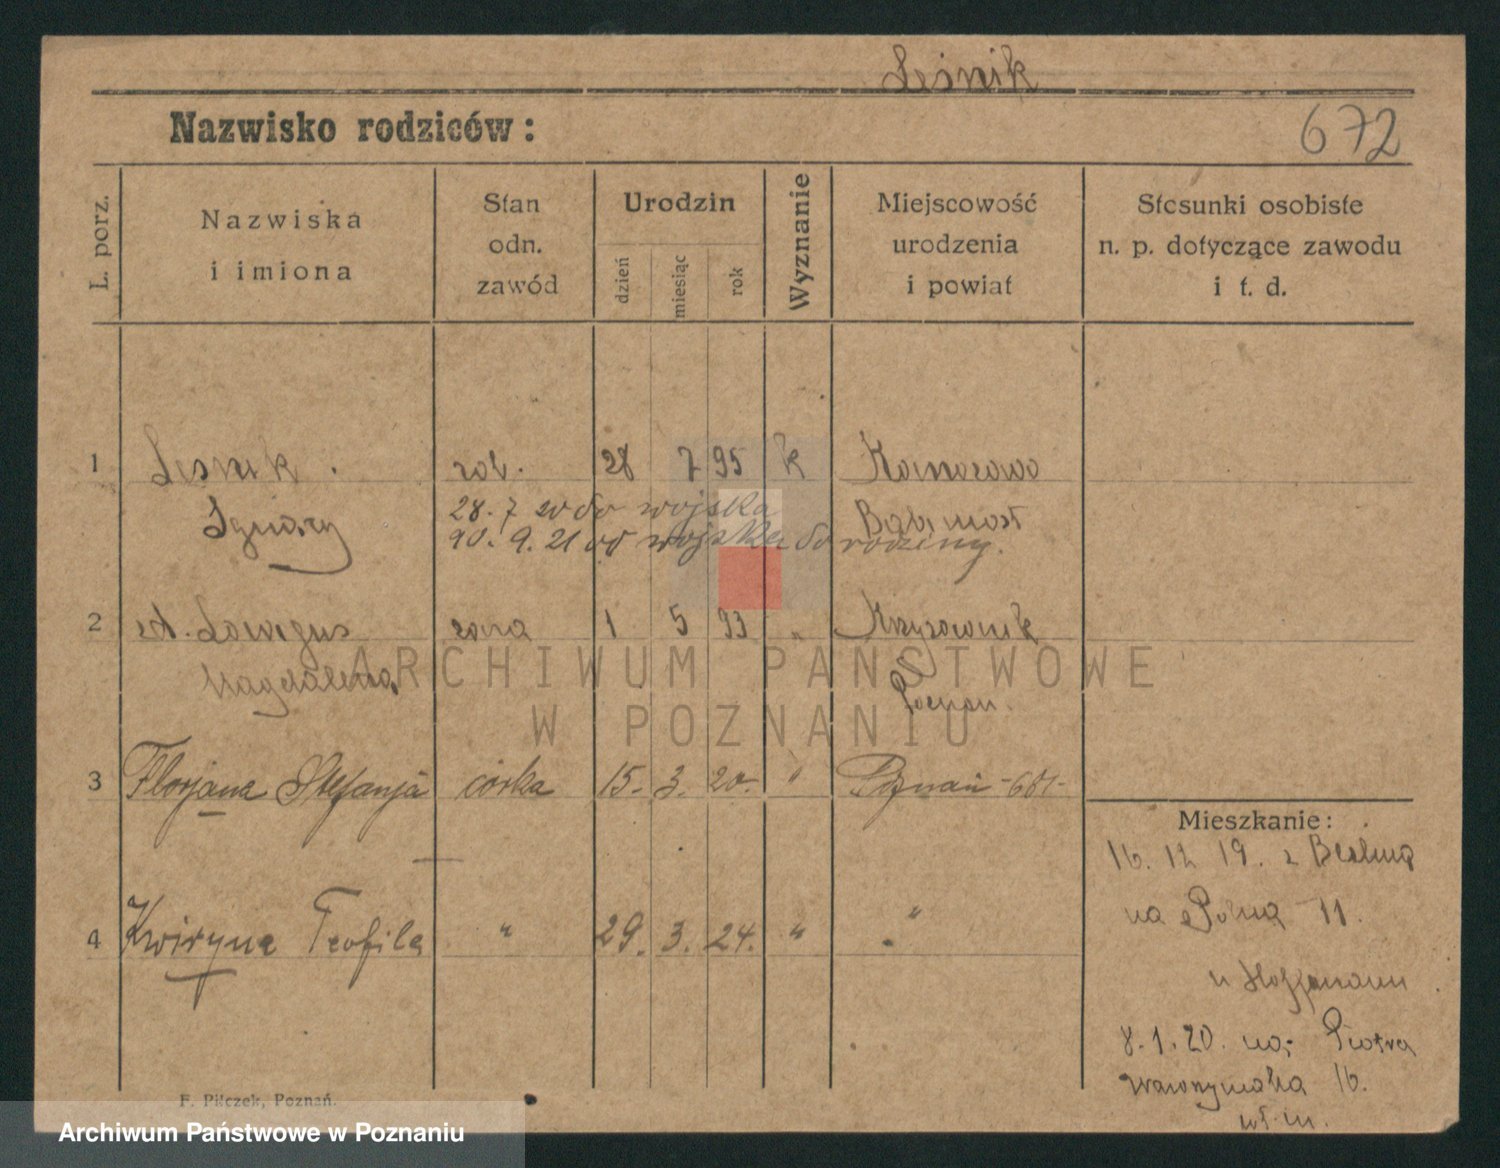 Leśnik
Nazwisko rodziców:
672
L. porz.
Nazwiska
i imiona
Stan
odn.
zawód
Urodzin
dzień
miesiąc
rok
Wyznanie
Miejscowość
urodzenia
i powiat
Stosunki osobiste
n. p. dotyczące zawodu
i t. d.
1 Leśnik rob. 28 7 95 k
Ignacy Babimost
28. 7 20 do wojska
9. 21 od wojska do rodziny.
2 żona 1 5 93 „ Krzyżownik
Magdalena Poznań.
ARCHIWUM PAŃSTWOWE
W POZNANIU
3 Florjana Stefanja córka 15. 3. 20. „ Poznań -681-
Mieszkanie:
16. 12 19. z Berlina
4 Kwiryna Teofila " 29. 3. 24. " "
na Polną 11.
u Hoffmann
8. 1. 20. na Piotra
Wawrzyniaka 16.
F. Pilczek, Poznań.
Archiwum Państwowe w Poznaniu